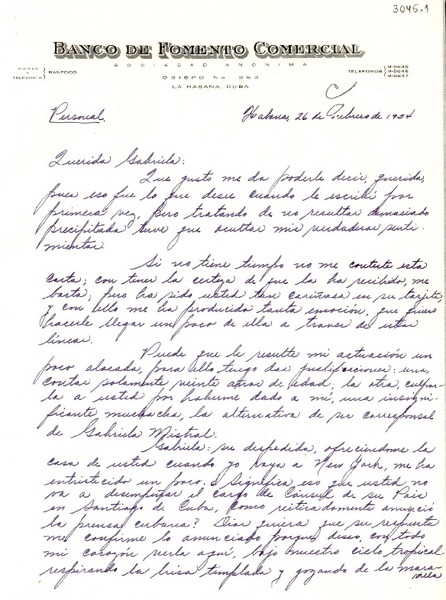 3045.1
BANCO DE FOMENTO COMERCIAL
SOCIEDAD ANONIMA
CABLE Y TELEGRAFO } BANFOCO
OBISPO No 252
TELEFONOS { M-5645 M-5646 M-5647
LA HABANA, CUBA
Personal.
Habana, 26 de Febrero de 1954
Querida Gabriela:
Que gusto me da poderle decir, querida,
pues eso fue lo que desee cuando le escribí por
primera vez, pero tratando de no resultar demasiado
precipitada tuve que ocultar mis verdaderos senti-
mientos.
Si no tiene tiempo no me conteste esta
carta; con tener la certeza de que la ha recibido, me
basta; pero ha sido usted tan cariñosa en su tarjeta,
y con ello me ha producido tanta emoción, que quiero
hacerle llegar un poco de ella a traves de estas
lineas.
Puede que le resulte mi actuación un
poco alocada, para ello tengo dos justificaciones: una,
contar solamente veinte años de edad; la otra, culpar-
la a usted por haberme dado a mi, una insigni-
ficante muchacha, la alternativa de ser corresponsal
de Gabriela Mistral.
Gabriela: su despedida, ofreciendome la
casa de usted cuando yo vaya a New York, me ha
entristecido un poco. ¿Significa eso que usted no
va a desempeñar el cargo de Consul de su Pais
en Santiago de Cuba, como reiteradamente anunció
la prensa cubana? Dios quiera que su respuesta
me confirme lo anunciado porque deseo, con todo
mi corazón verla aquí, bajo nuestro cielo tropical
respirando la brisa templada y gozando de la mara-
villa